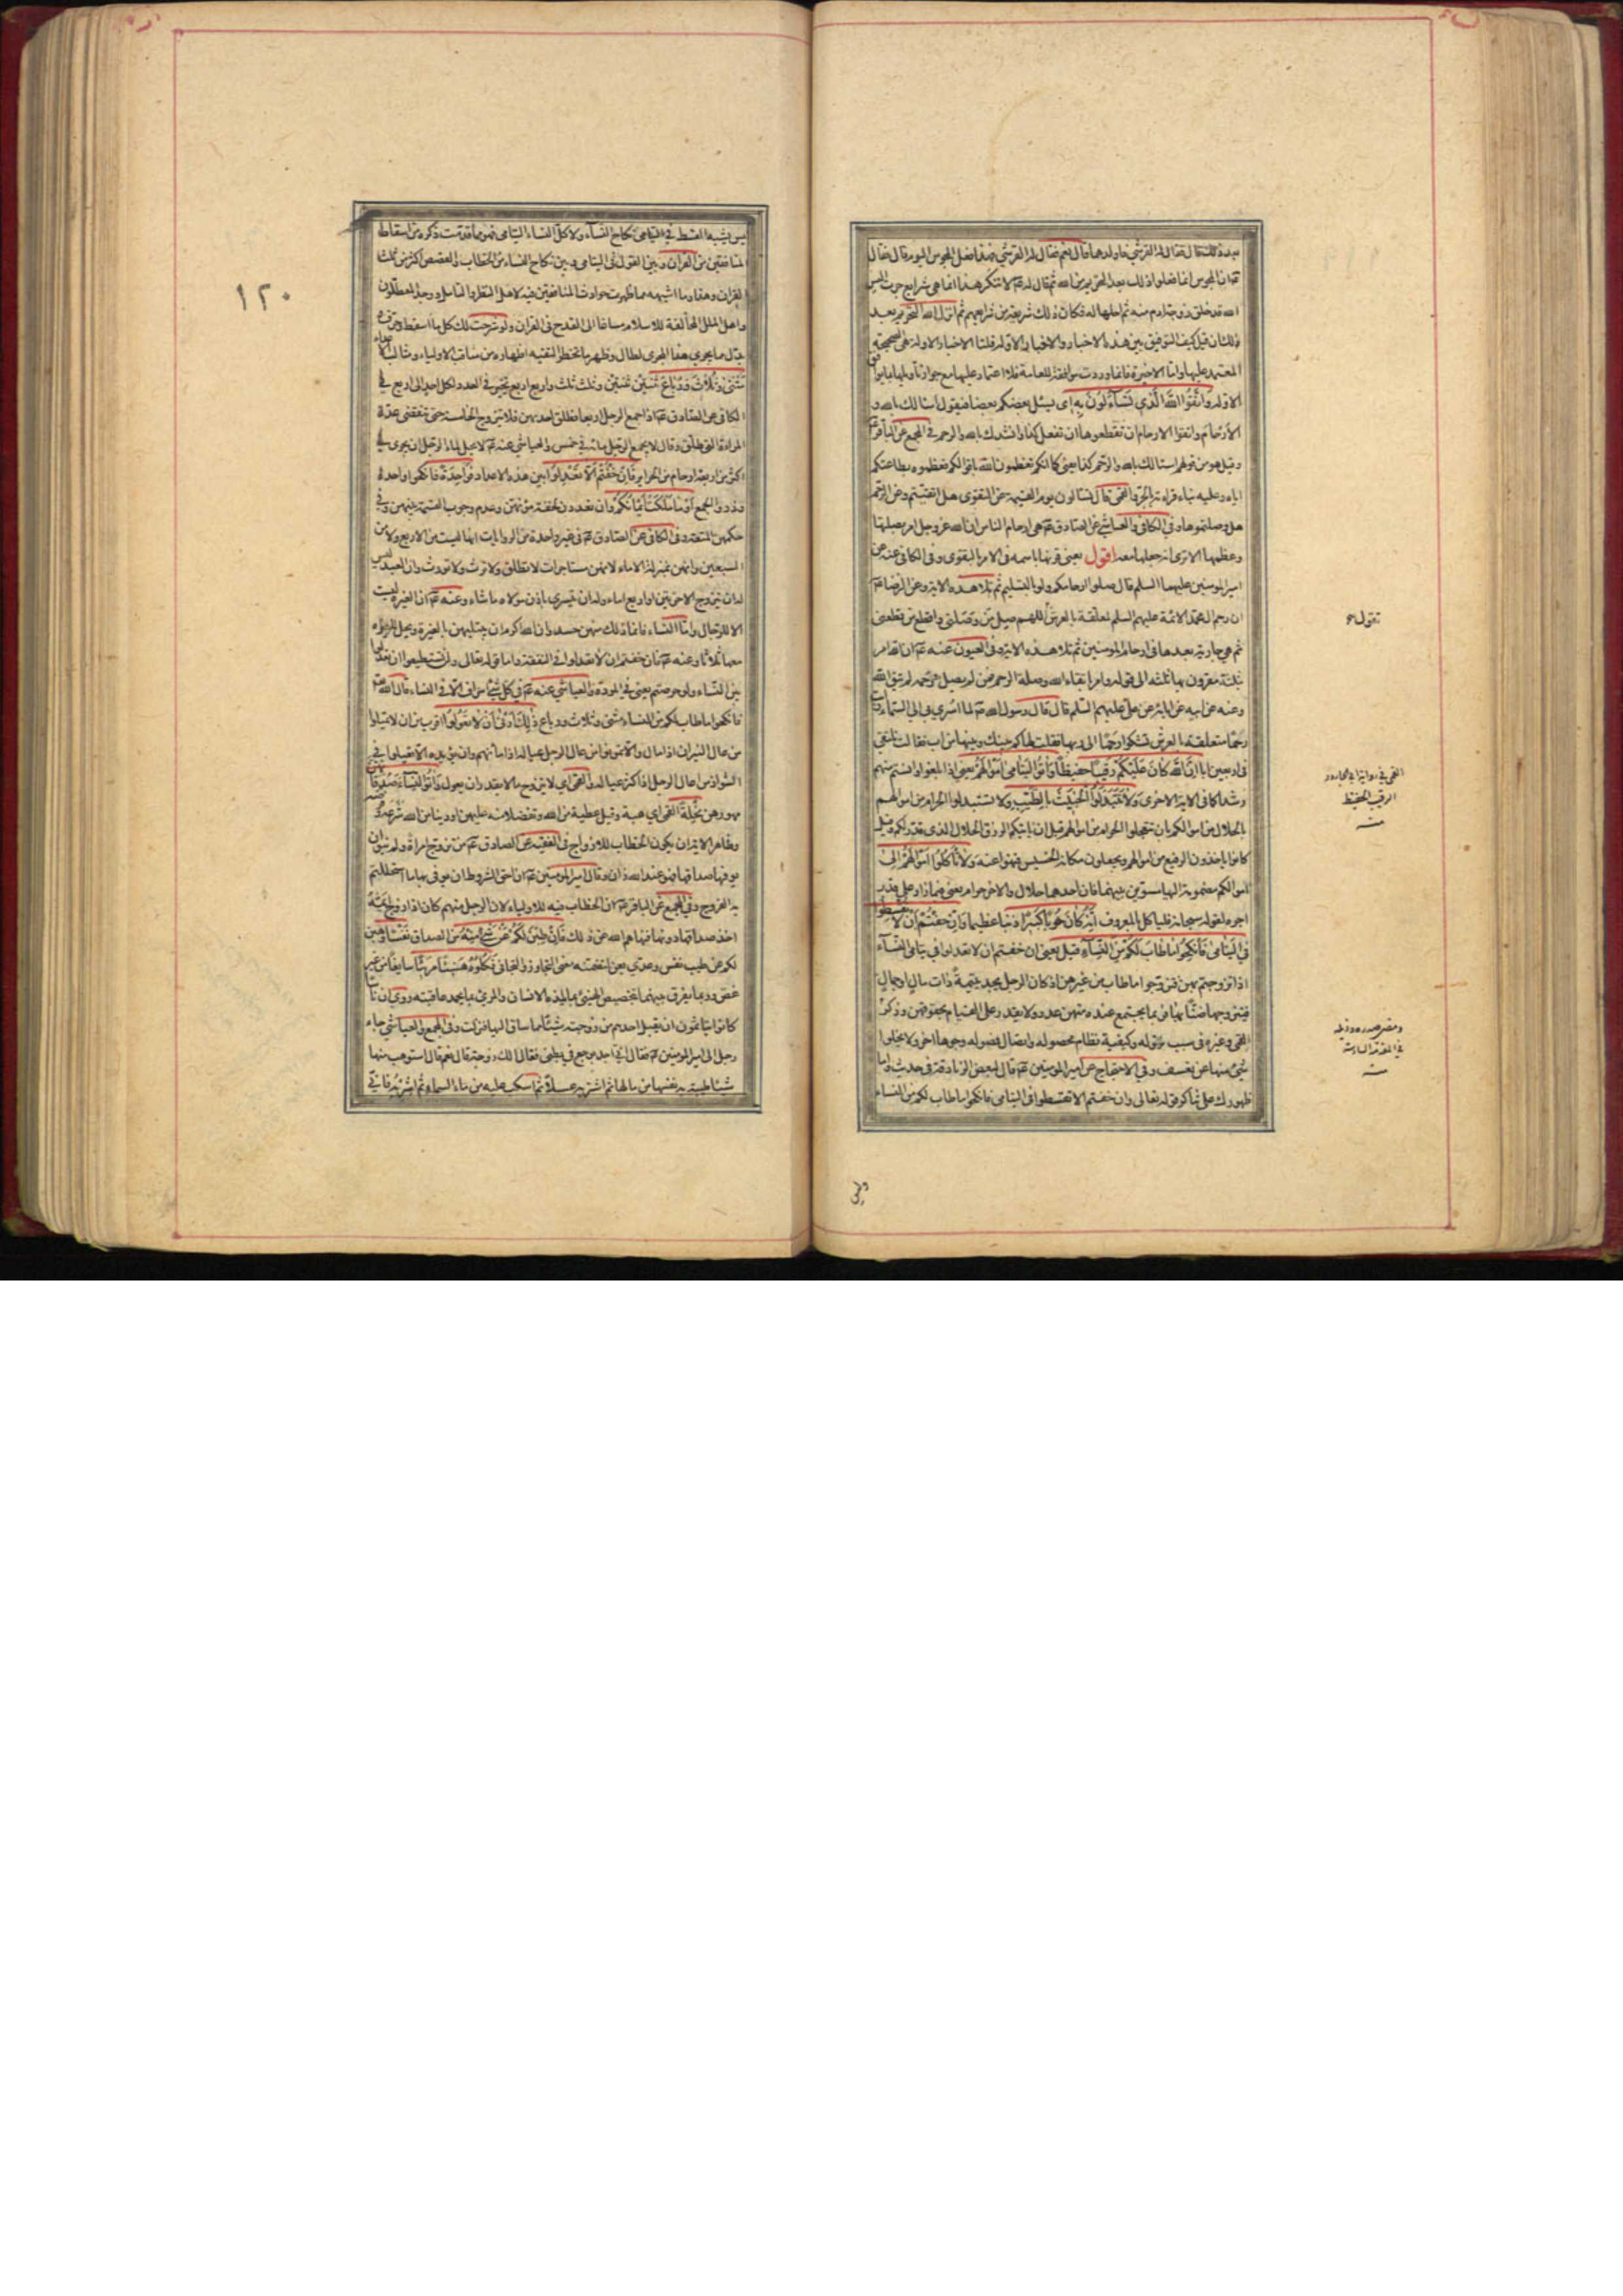 بعد ذلك قال فقال له القرشي فاولدهما قال نعم فقال له القرشي فهذا فعل المجوس اليوم قال فقال
عم ان المجوس انما فعلوا ذلك بعد التحريم من الله ثم قال له عم لا تنكر هذا انما هي شرايع جرت اليس
الله قد خلق زوجة ادم منه ثم احلها له فكان ذلك شريعة من شرايعهم ثم انزل الله التحريم بعد
ذلك ان قيل كيف التوفيق بين هذه الاخبار والاخبار الاوله قلنا الاخبار الاوله هي الصحيحة
المعتمد عليها وانما الاخيرة فانما وردت موافقة للعامة فلا اعتماد عليها مع جواز تاويلها بما يوافق
الاوله وَاتَّقُوا اللهَ الَّذي تَسَآءَلُونَ بِهِ اى يسئل بعضكم بعضا فيقول اسالك بالله و
الأَرْحامَ واتقوا الارحام ان تقطعوها ان تفعل كذا وانشدك بالله والرحم في المجمع عن الباقر عم
وقيل هو من قولهم اسالك بالله والرحم كذا يعني كما انكم تعظمون الله باقوالكم فعظموه بطاعتكم
اياه وعليه بناء قراءة الجر والقمي قال تسالون يوم القيمة عن التقوى هل اتقيتم وعن الرحم
هل وصلتموها وفي الكافي والعياشي عن الصادق عم هي ارحام الناس ان الله عز وجل امر بصلتها
وعظمها الا ترى انه جعلها معه اقول يعني قرنها باسمه في الامر بالتقوى وفي الكافي عنه عن
امير المومنين عليهما السلم قال صلوا ارحامكم ولو بالتسليم ثم تلا هذه الاية وعن الرضا عم
ان رحم آل محمد الائمة عليهم السلم لمعلقة بالعرش تقول اللهم صل من وصلني واقطع من قطعني
ثم هي جارية بعدها في ارحام المومنين ثم تلا هذه الاية وفي العيون عنه عم ان الله امر
بثلثة مقرون بها ثلثه الى قوله وامر باتقاء الله وصلة الرحم فمن لم يصل رحمه لم يتق الله
وعنه عن ابيه عن ابائه عن علي عليهم السلم قال قال رسول الله ص لما اسري بي الى السماء رايت
رحما متعلقة بالعرش تشكو رحما الى ربها فقلت لها كم بينك وبينها من اب فقالت نلتقي
في اربعين ابا اِنَّ اللهَ كانَ عَلَيْكُمْ رَقيبًا حفيظا وَآتُوا الْيَتامى اَمْوالَهُمْ يعني اذا بلغوا وانستم منهم
رشدا كما في الاية الاخرى وَلا تَتَبَدَّلُوا الْخَبيثَ بِالطَّيِّبِ ولا تستبدلوا الحرام من اموالهم
بالحلال من اموالكم بان تتعجلوا الحرام من اموالهم قبل ان ياتيكم الرزق الحلال الذي قدر لكم وقيل
كانوا ياخذون الرفيع من اموالهم ويجعلون مكانه الخسيس فنهوا عنه وَلا تَاْكُلُوا اَمْوالَهُمْ اِلى
اموالكم مضمومة اليها مسوين بينهما فان احدهما حلال والاخر حرام يعني فيما زاد على قدر
اجره لقوله سبحانه فلياكل بالمعروف اِنَّهُ كانَ حُوبًا كَبيرًا ذنبا عظيما وَاِنْ خِفْتُمْ اَنْ لا تُقْسِطُوا
فِي الْيَتامى فَانْكِحُوا ما طابَ لَكُمْ مِنَ النِّسآءِ قيل يعني ان خفتم ان لا تعدلوا في يتامى النسآء
اذا تزوجتم بهن فتزوجوا ما طاب من غيرهن اذ كان الرجل يجد يتيمةً ذات مالٍ وجمالٍ
فيتزوجها ضنًّا بها فربما يجتمع عنده منهن عدد ولا يقدر على القيام بحقوقهن وذكر
القمي وغيره في سبب نزوله وكيفية نظام محصوله واتصال فصوله وجوها اخر ولا يخلو
شيء منها عن تعسف وفي الاحتجاج عن امير المومنين عم قال لبعض الزنادقة في حديث واما
ظهورك على تناكر قوله تعالى وان خفتم الا تقسطوا في اليتامى فانكحوا ما طاب لكم من النساء
تقول صح
القمي في رواية ابي الجارود
الرقيب الحفيظ
منه
في المقدمة السادسة
منه
وليس
١٢٠
ليس يشبه القسط في اليتامى نكاح النسآء ولا كل النساء ايتامى فهو مما قدمت ذكره من اسقاط
المنافقين من القرآن وبين القول في اليتامى وبين نكاح النساء من الخطاب والقصص اكثر من ثلث
القران وهذا وما اشبهه مما ظهرت حوادث المنافقين فيه لاهل النظر والتامل ووجد المعطلون
واهل الملل المخالفة للاسلام مساغا الى القدح في القران ولو شرحت لك كل ما اسقط وحرف و
بدّل مما يجري هذا المجرى لطال وظهر ما تحظر التقية اظهاره من مناقب الاولياء ومثالب الاعداء
مَثْنى وَثُلاثَ وَرُباعَ ثنتين ثنتين وثلث ثلث واربع اربع تخير في العدد لكل احد الى اربع في
الكافي عن الصادق عم اذا جمع الرجل اربعا فطلق احديهن فلا يتزوج الخامسة حتى تنقضي عدة
المراة التي طلق وقال لا يجمع الرجل مائه في خمس والعياشي عنه عم لا يحل لماء الرجل ان يجري في
اكثر من اربعة ارحام من الحراير فَاِنْ خِفْتُمْ اَلّا تَعْدِلُوا بين هذه الاعداد فَواحِدَةً فانكحوا واحدة
وذروا الجمع اَوْ ما مَلَكَتْ اَيْمانُكُمْ وان تعددن لخفة مؤنهن وعدم وجوب القسمة بينهن وفي
حكمهن المتعة ففي الكافي عن الصادق عم في غير واحدة من الروايات انها ليست من الاربع ولا من
السبعين وانهن بمنزلة الاماء لانهن مستاجرات لا تطلق ولا ترث ولا تورث وان العبد ليس
له ان يتزوج الا حرتين او اربع اماء وله ان يتسرى باذن مولاه ما شاء وعنه عم ان الغيرة ليست
الا للرجال واما النساء فانما ذلك منهن حسد وان الله اكرم ان يبتليهن بالغيرة ويحل للرجل
معها ثلاثا وعنه عم فان خفتم ان لا تعدلوا في النفقة واما قوله تعالى ولن تستطيعوا ان تعدلوا
بين النساء ولو حرصتم يعني في المودة والعياشي عنه عم في كل شيء اسراف الا في النساء قال الله تعالى
فانكحوا ما طاب لكم من النساء مثنى وثلاث ورباع ذلِكَ اَدْنى اَنْ لا تَعُولُوا اقرب من ان لا تميلوا
من عال الميزان اذا مال والا تمونوا من عال الرجل عياله اذا مانهم
الشواذ من اعال الرجل اذا كثر عياله والقمي اي لا يتزوج ما لا يقدر ان يعول وَآتُوا النِّسآءَ صَدُقاتِهِنَّ
مهورهن نِحْلَةً القمي اي هبة وقيل عطية من الله وتفضلا منه عليهن او دينا من الله شرعه و
وظاهر الاية ان يكون الخطاب للازواج في الفقيه عن الصادق عم من تزوج امراة ولم ينو ان
يوفيها صداقها فهو عند الله زان وقال امير المومنين عم ان احق الشروط ان يوفى بها ما استحللتم
به الفروج وفي المجمع عن الباقر عم ان الخطاب فيه للاولياء لان الرجل منهم كان اذا زوج ايمة
اخذ صداقها دونها فنهاهم الله عن ذلك فَاِنْ طِبْنَ لَكُمْ عَنْ شَيْءٍ مِنْهُ من الصداق نَفْسًا وهبن
لكم عن طيب نفس وعدي بعن لتضمنه معنى التجاوز والتجافي فَكُلُوهُ هَنيئًا مَريئًا سايغا من غير
غصّ وربما يفرق بينهما بتخصيص الهنيء بما يلذه الانسان والمريء بما يحمد عاقبته روي ان ناسا
كانوا يتاثمون ان يقبل احدهم من زوجته شيئا مما ساق اليها فنزلت وفي المجمع والعياشي جاء
رجل الى امير المومنين عم فقال اني اجد بوجع في بطني فقال الك زوجة قال نعم قال استوهب منها
شيئا طيبة به نفسها من مالها ثم اشتر به عسلا ثم اسكب عليه من ماء السماء ثم اشربه فاني